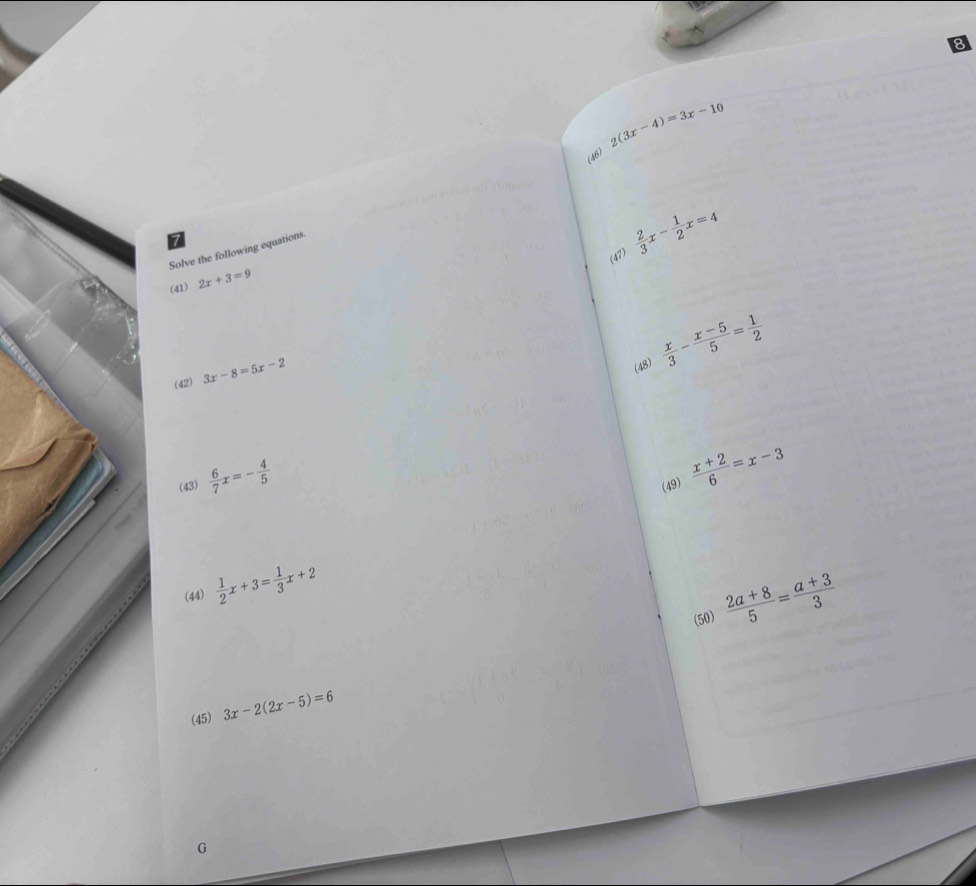 7
Solve the following equations.
(41) 2x + 3 = 9
(42) 3x − 8 = 5x − 2
(43) 6/7 x = − 4/5
(44) 1/2 x + 3 = 1/3 x + 2
(45) 3x − 2(2x − 5) = 6
G
8
(46) 2(3x − 4) = 3x − 10
(47) 2/3 x − 1/2 x = 4
(48) x/3 − (x − 5)/5 = 1/2
(49) (x + 2)/6 = x − 3
(50) (2a + 8)/5 = (a + 3)/3